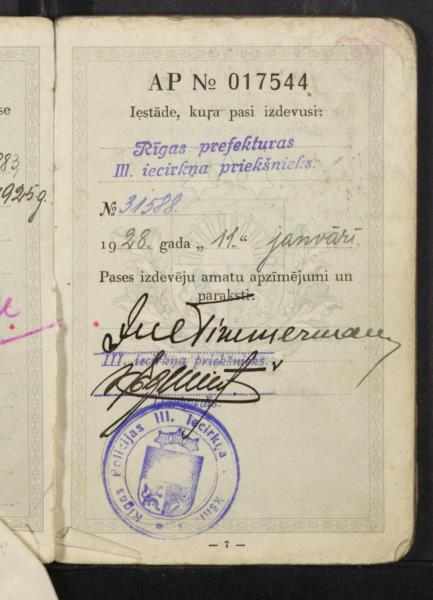 se
AP № 017544
Iestāde, kuŗa pasi izdevusi:
Rīgas prefektūras
III. iecirkņa priekšnieks.
№ 31588.
883,
1925 g.
1928. gada „ 11. “ janvārī.
Pases izdevēju amatu apzīmējumi un
paraksti:
Timmermann
III. iecirkņa priekšnieks.
Rīgas Policijas III. iecirkņa
— 7 —